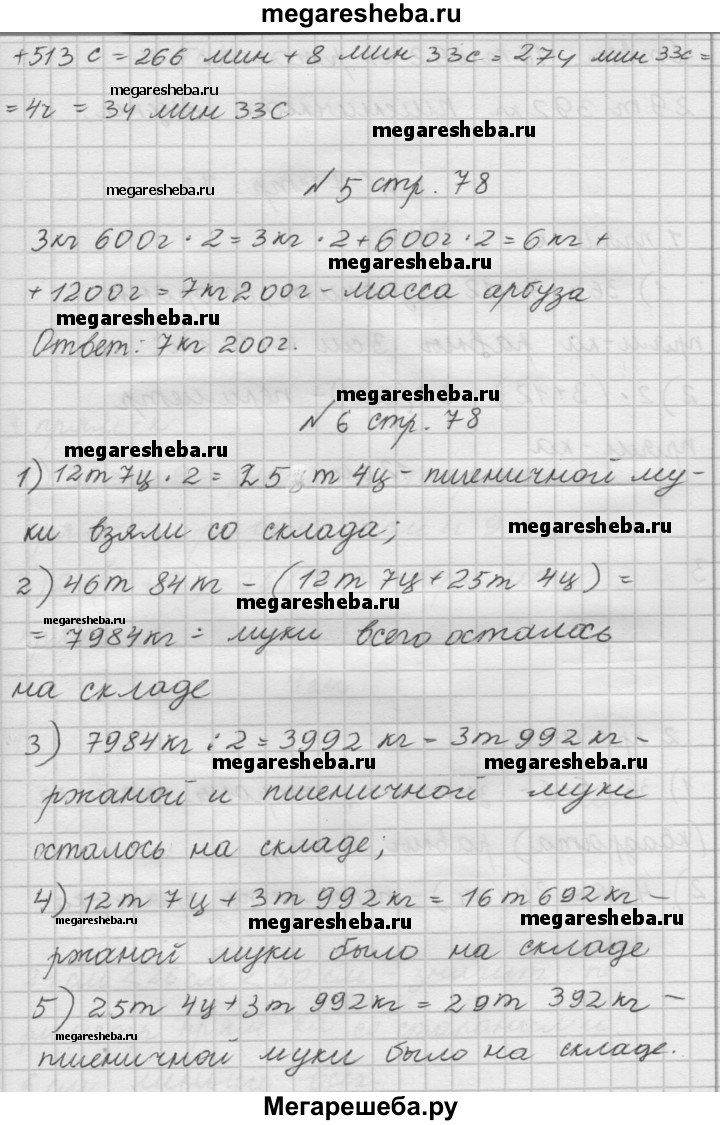 megaresheba.ru
+513 с = 266 мин + 8 мин 33с = 274 мин 33с =
megaresheba.ru
= 4ч = 34 мин 33С
megaresheba.ru
megaresheba.ru
№ 5 стр. 78
3кг 600г · 2 = 3кг · 2 + 600г · 2 = 6кг +
megaresheba.ru
+ 1200г = 7кг 200г - масса арбуза
megaresheba.ru
Ответ: 7кг 200г.
megaresheba.ru
№ 6 стр. 78
megaresheba.ru
1) 12т 7ц · 2 = 25 т 4ц - пшеничной му-
megaresheba.ru
ки взяли со склада;
2) 46т 84кг - (12т 7ц + 25т 4ц) =
megaresheba.ru
megaresheba.ru
= 7984кг - муки всего осталось
на складе
3) 7984кг : 2 = 3992 кг - 3т 992кг -
megaresheba.ru megaresheba.ru
ржаной и пшеничной муки
осталось на складе;
4) 12т 7ц + 3т 992кг = 16т 692кг -
megaresheba.ru megaresheba.ru megaresheba.ru
ржаной муки было на складе
5) 25т 4ц + 3т 992кг = 29т 392кг -
megaresheba.ru megaresheba.ru
пшеничной муки было на складе.
Мегарешеба.ру